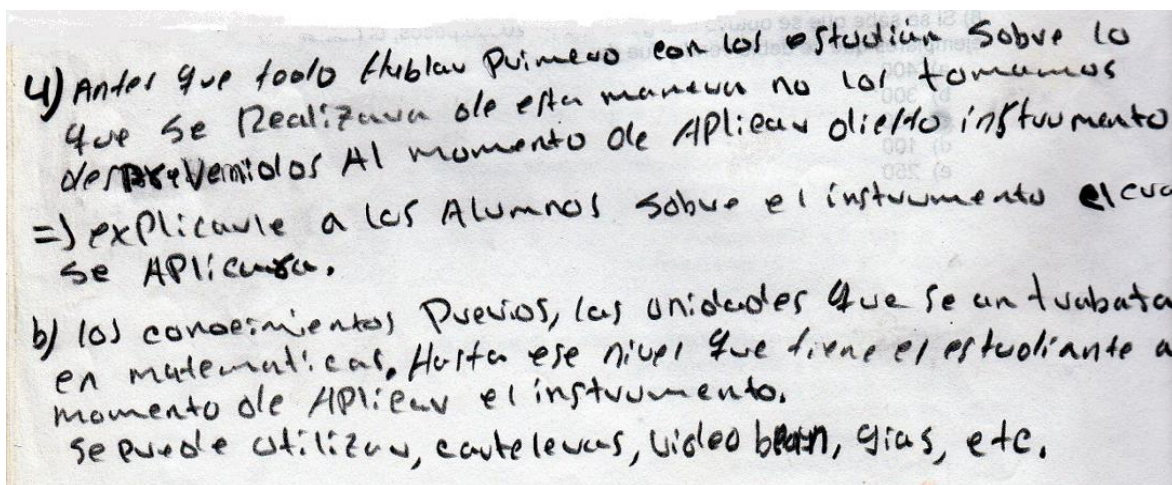 4) Antes que todo Hablar Primero con los estudian Sobre lo
que se Realizara de esta manera no los tomamos
desprevenidos Al momento de Aplicar dicHo instrumento
=) explicarle a los Alumnos sobre el instrumento el cua
se Aplicara.
b) los conocimientos Previos, las unidades que se an trabata
en matematicas, Hasta ese nivel que tiene el estudiante a
momento de Aplicar el instrumento.
se puede utilizar, carteleras, video bean, gias, etc.